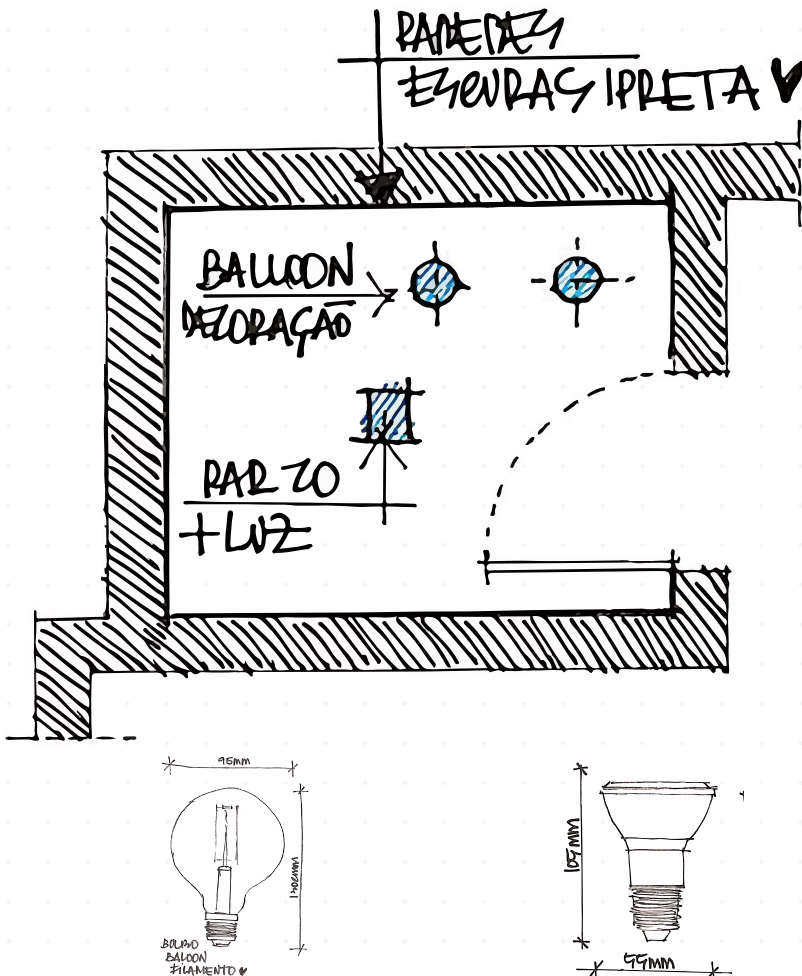 PAREDES
ESCURAS | PRETA ♥
BALLOON
DECORAÇÃO
PAR 20
+ LUZ
95mm
BULBO
BALOON
FILAMENTO ♥